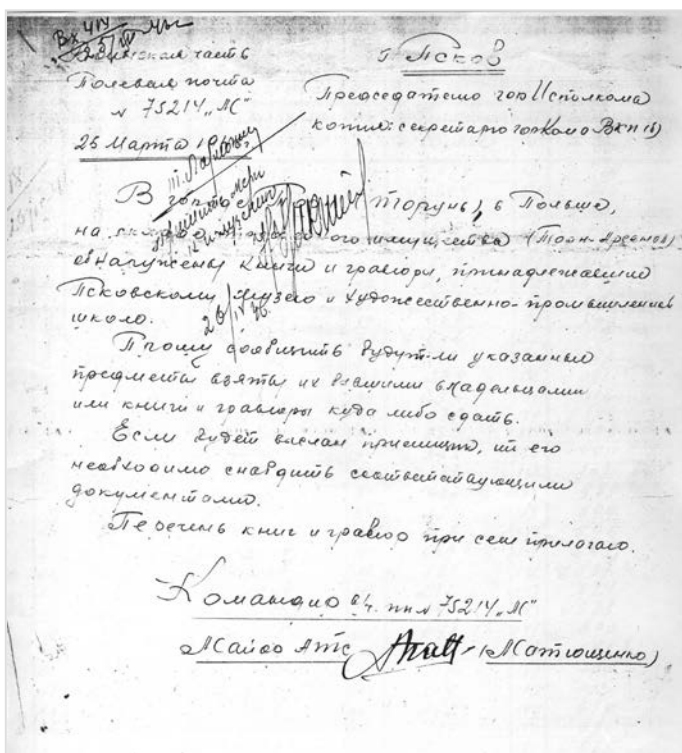 Вх 414
25/IV
Воинская часть
Полевая почта
№ 75214 „М"
25 Марта
г. Псков
Председателю гор Исполкома
копия: секретарю горКома ВКП(б)
т.
принять меры
к
26/IV 46.
В Торунь, в Польше,
на имущества
обнаружены книги и гравюры, принадлежавшие
Псковскому Музею и Художественно-промышленной
школе.
Прошу сообщить будут-ли указанные
предметы взяты их бывшими владельцами
или книги и гравюры куда либо сдать.
Если будет выслан приемщик, то его
необходимо снабдить соответствующими
документами.
Перечень книг и гравюр при сем прилагаю.
Командир в/ч. пп № 75214 „М"
Майор (Матющенко)